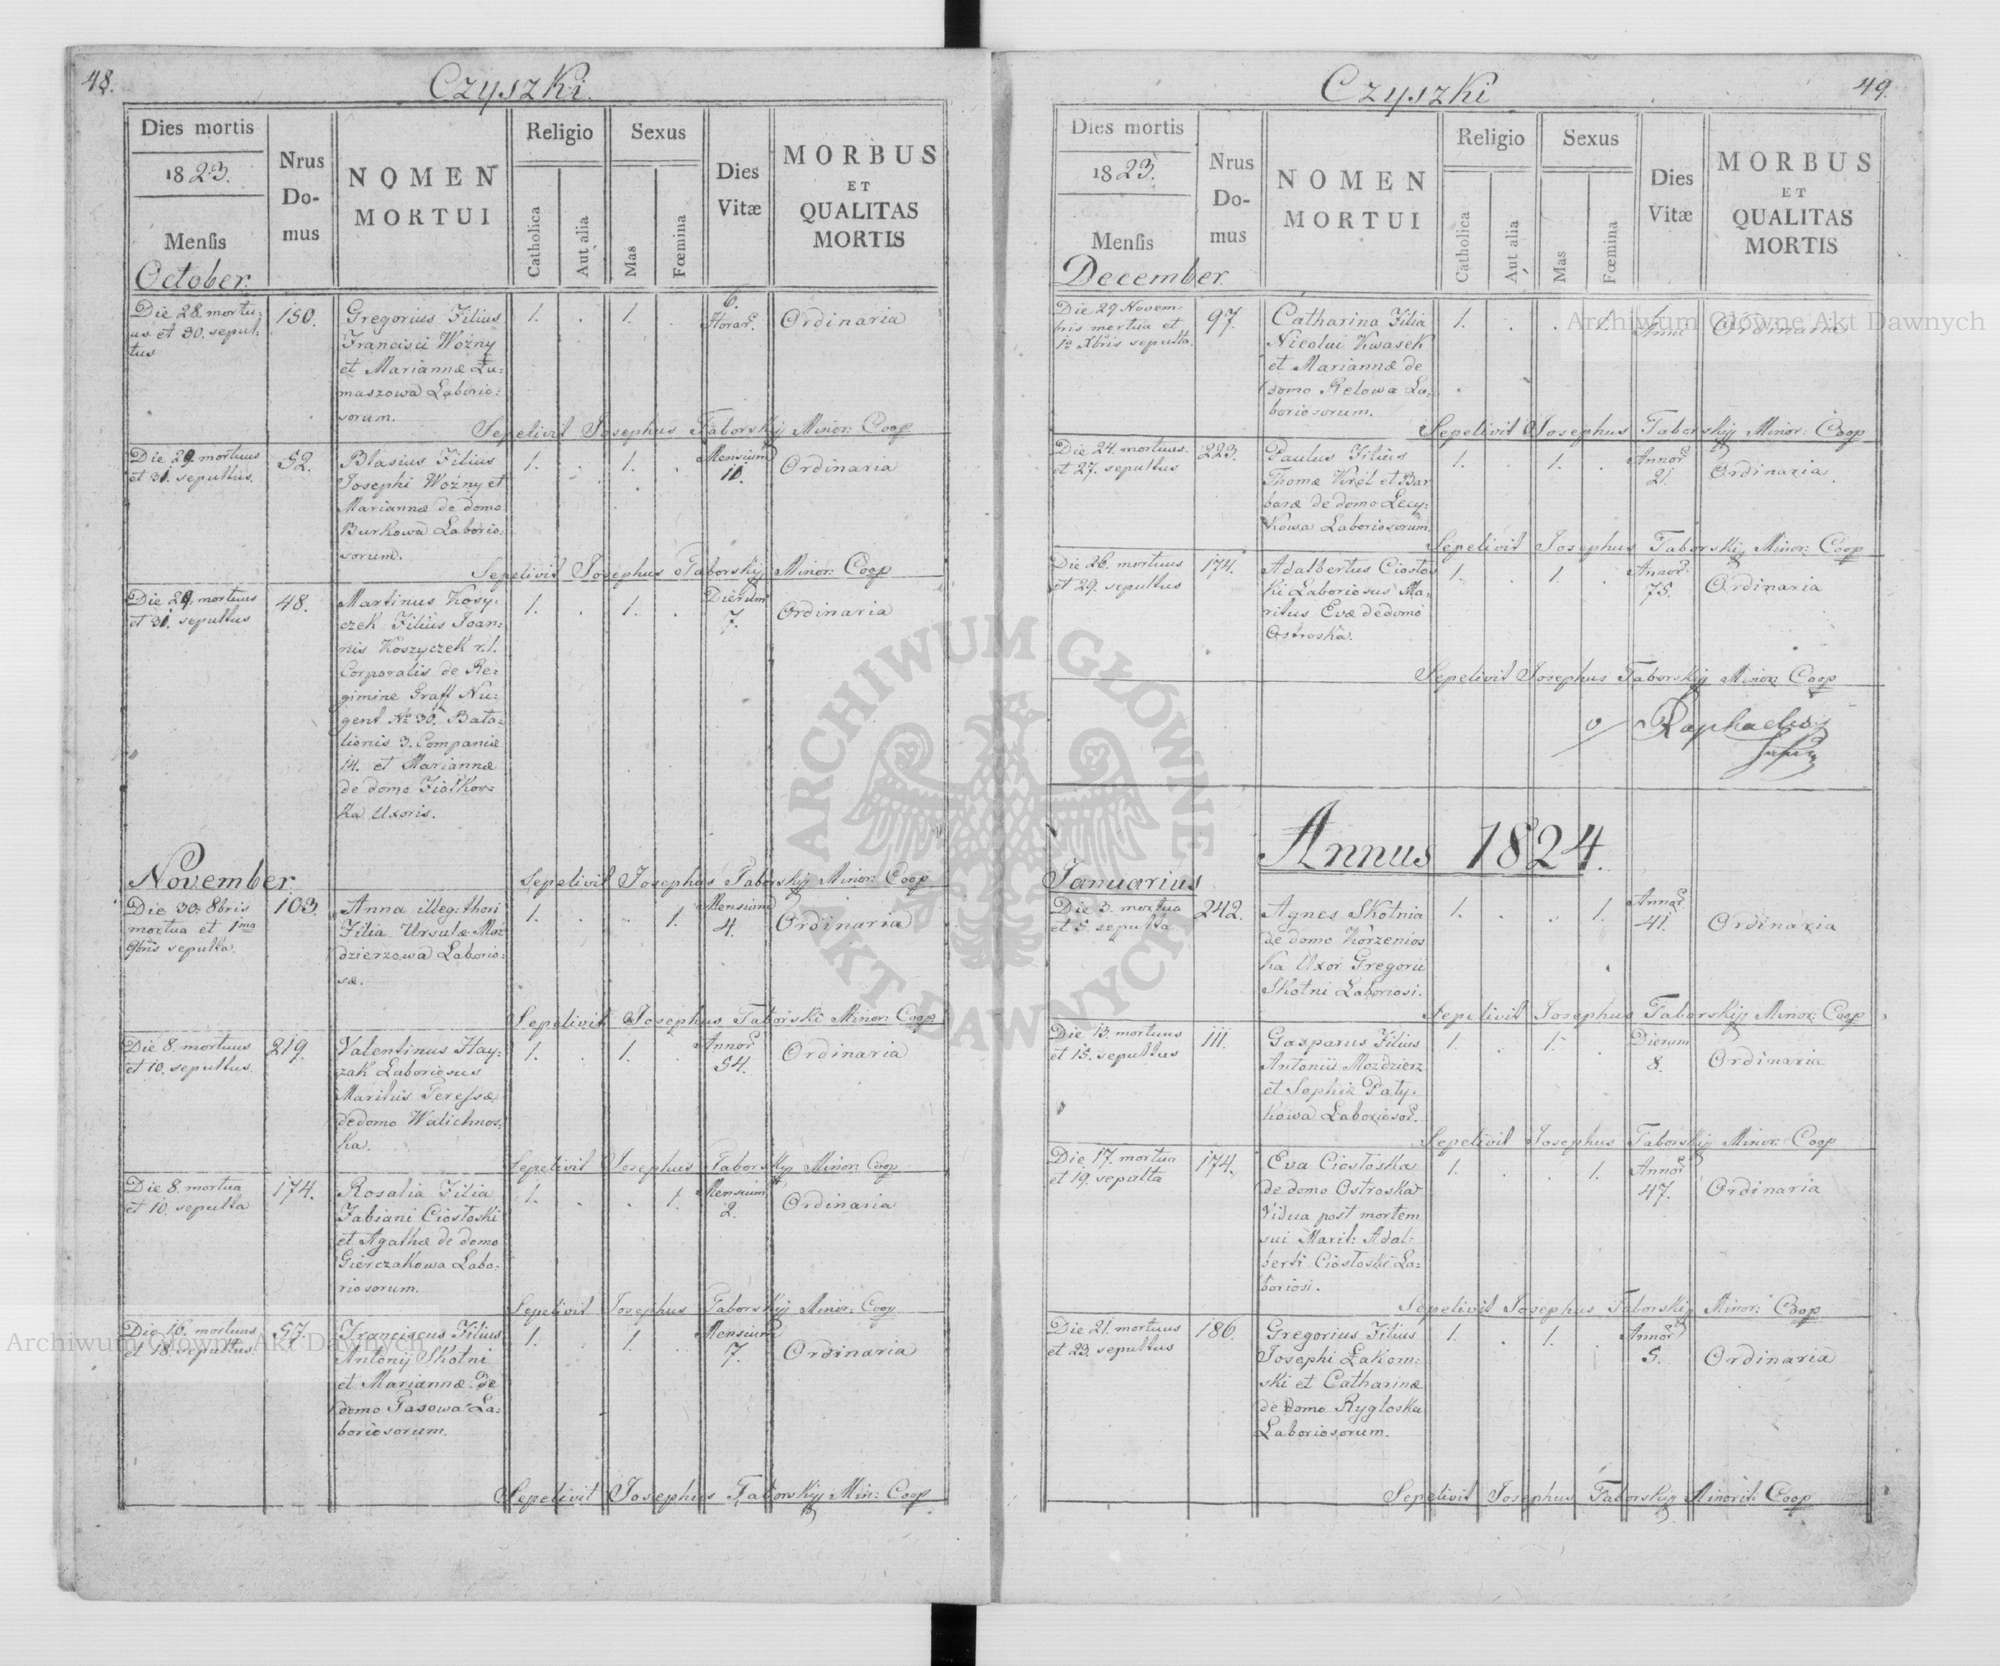 48.
Czyszki.
Dies mortis
1823.
Mensis
October.
Nrus
Do-
mus
NOMEN
MORTUI
Religio
Catholica
Aut alia
Sexus
Mas
Fœmina
Dies
Vitæ
MORBUS
ET
QUALITAS
MORTIS
Die 28. mortu:
us et 30. sepul:
tus
150.
Gregorius Filius
Francisci Woźny
et Mariannæ Łu:
maszowa Laborio:
sorum.
1. . 1. .
6.
Horar.
Ordinaria
Sepelivit Josephus Taborskij Minor: Coop
Die 29. mortuus
et 31. sepultus.
52.
Blasius Filius
Josephi Woźny et
Mariannæ de domo
Burkowa Laborio:
sorum.
1. . 1. .
Mensium
10.
Ordinaria
Sepelivit Josephus Taborskij Minor: Coop
Die 29. mortuus
et 31. sepultus
48.
Martinus Kosy:
czek Filius Joan:
nis Koszyczek r. l.
Corporalis de Re:
gimine Graff Nu:
gent No 30. Bata:
lionis 3. Compania
14. et Mariannæ
de domo Fiołkow:
ka Uxoris.
1. . 1. .
Dierum
7.
Ordinaria
Sepelivit Josephus Taborskij Minor: Coop
November
Die 30. 8bris
mortua et 1ma
9bris sepulta.
103.
Anna illeg: thori
Filia Ursulæ Moz
dzierzowa Laborio:
sæ.
1. . . 1.
Mensium
4.
Ordinaria
Sepelivit Josephus Taborski Minor: Coop
Die 8. mortuus
et 10. sepultus.
219.
Valentinus Hay:
zak Laboriosus
Maritus Teressæ
de domo Walichnos:
ka.
1. . 1. .
Annor.
54.
Ordinaria
Sepelivit Josephus Taborskij Minor: Coop
Die 8. mortua
et 10. sepulta
174.
Rosalia Filia
Fabiani Ciostoski
et Agathæ de domo
Gierczakowa Labo:
riosorum.
1. . . 1.
Mensium
2.
Ordinaria
Sepelivit Josephus Taborskij Minor: Coop
Die 16. mortuus
et 18. sepultus.
57.
Franciscus Filius
Antonij Skotni
et Mariannæ de
domo Tasowa La:
boriosorum.
1. . 1. .
Mensium
7.
Ordinaria
Sepelivit Josephus Taborskij Min: Coop
49.
Czyszki
Dies mortis
1823.
Mensis
December.
Nrus
Do-
mus
NOMEN
MORTUI
Religio
Catholica
Aut alia
Sexus
Mas
Fœmina
Dies
Vitæ
MORBUS
ET
QUALITAS
MORTIS
Die 29. Novem:
bris mortua et
1a Xbris sepulta.
97.
Catharina Filia
Nicolai Kwasek
et Mariannæ de
domo Relowa La:
boriosorum.
1. . . 1.
1.
Anni
Ordinaria
Sepelivit Josephus Taborskij Minor: Coop
Die 24. mortuus
et 27. sepultus
223.
Paulus Filius
Thomæ Kirel et Bar
baræ de domo Lecy:
kowa Laboriosorum.
1. . 1. .
Annor.
21.
Ordinaria
Sepelivit Josephus Taborskij Minor: Coop
Die 26. mortuus
et 29. sepultus
174.
Adalbertus Ciostos
ki Laboriosus Ma:
ritus Evæ de domo
Ostroska.
1. . 1. .
Annor.
75.
Ordinaria
Sepelivit Josephus Taborskij Minor: Coop
Raphaelis
Annus 1824.
Januarius
Die 3. mortua
et 5. sepulta
242.
Agnes Skotnia
de domo Korzenios
ka Uxor Gregorii
Skotni Laboriosi.
1. . . 1.
Annor.
41.
Ordinaria
Sepelivit Josephus Taborskij Minor: Coop
Die 13. mortuus
et 15. sepultus
111.
Gasparus Filius
Antonii Mozdzierz
et Sophiæ Paty:
kowa Laborioso.
1. . 1. .
Dierum
8.
Ordinaria
Sepelivit Josephus Taborskij Minor: Coop
Die 17. mortua
et 19. sepulta
174.
Eva Ciostoska
de domo Ostroska
Vidua post mortem
sui Marit: Adal:
berti Ciostoski La:
boriosi.
1. . . 1.
Annor
47.
Ordinaria
Sepelivit Josephus Taborskij Minor: Coop
Die 21. mortuus
et 23. sepultus
186.
Gregorius Filius
Josephi Łakom:
ski et Catharinæ
de domo Rygloska
Laboriosorum.
1. . 1. .
Annor
5.
Ordinaria
Sepelivit Josephus Taborskij Minorit: Coop
ARCHIWUM GŁÓWNE AKT DAWNYCH
Archiwum Główne Akt Dawnych
Archiwum Główne Akt Dawnych